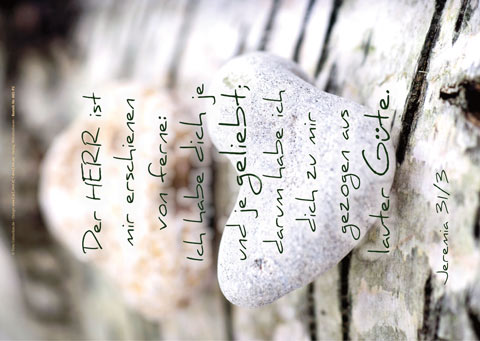 Der HERR ist
mir erschienen
von ferne:
Ich habe dich je
und je geliebt;
darum habe ich
dich zu mir
gezogen aus
lauter Güte.
Jeremia 31/3